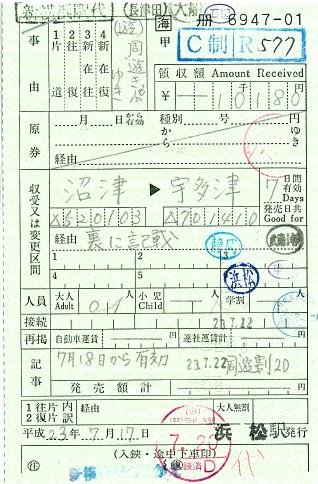 冊 6947-01
海
甲 C制 R577
事由
1 片道
2 往復
3 新在
4 新在往復
周遊きっぷ
ゆき
領収額 Amount Received
¥ 10180
原券
月 日から有効
種別 号
から ゆき
経由
円
収受又は変更区間
沼津 ▶ 宇多津
7 日間有効 Days
発売日共 Good for
X520103 X701410
経由 裏に記載
静岡
浜松
1 2 3
4 5
人員 大人 Adult 01人 小児 Child 人 学割
接続
23.7.22
再掲 自動車運賃 円 連社運賃計 円
記事
7月18日から有効 23.7.22 周遊割20
発売額計 円
1往片 内
2復片 訳
経由
大人無割
平成 23年 7月 17日 浜松 駅発行
(入鋏・途中下車印)
7.23